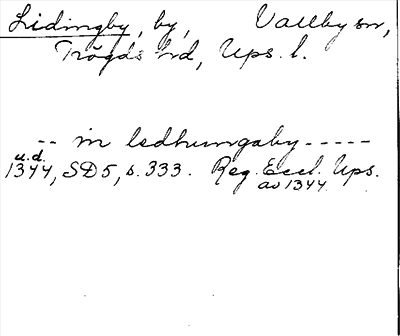 Lidingby, by, Vallby sn,
Trögds hd, Ups. l.
-- in ledhungaby -----
u.d.
1344, SD5, s. 333. Reg. Eccl. Ups.
av 1344.